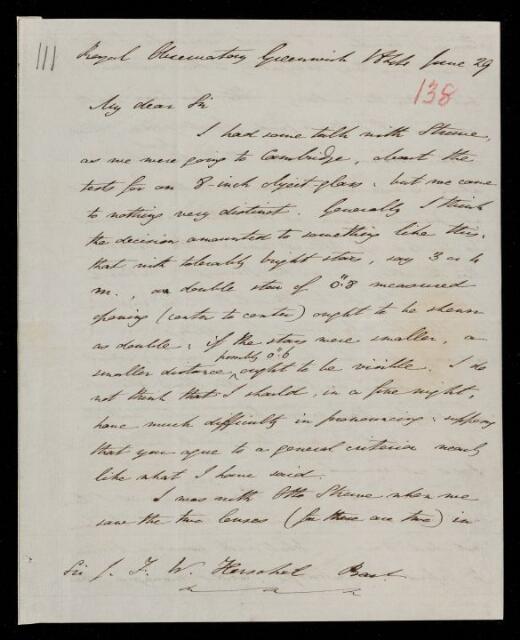 111
Royal Observatory Greenwich June 29
138
My dear Sir
I had some talk with Struve,
as we were going to Cambridge, about the
tests for an 8-inch object glass: but we came
to nothing very distinct. Generally I think
the decision amounted to something like this.
that with tolerably bright stars, say 3 or 4
m., a double star of 0".8 measured
opening (center to center) ought to be shewn
as double: if the stars were smaller, a
possibly 0".6
smaller distance, ought to be visible. I do
not think that I should, in a fine night,
have much difficulty in pronouncing: supposing
that you agree to a general criterion nearly
like what I have said.
I was with Otto Struve when we
saw the two lenses (for there are two) in
Sir J. F. W. Herschel Bart